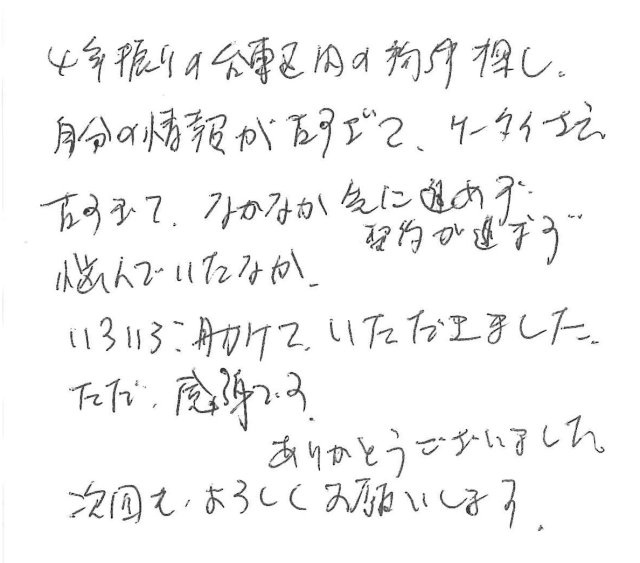 4年振りの台東区内の物件探し。
自分の情報が古すぎて、ケータイさえ
古すぎて、なかなか先に進めず
契約が進まず
悩んでいたなか、
いろいろご助けて、いただきました。
ただ、感謝です。
ありがとうございました。
次回も、よろしくお願いします。